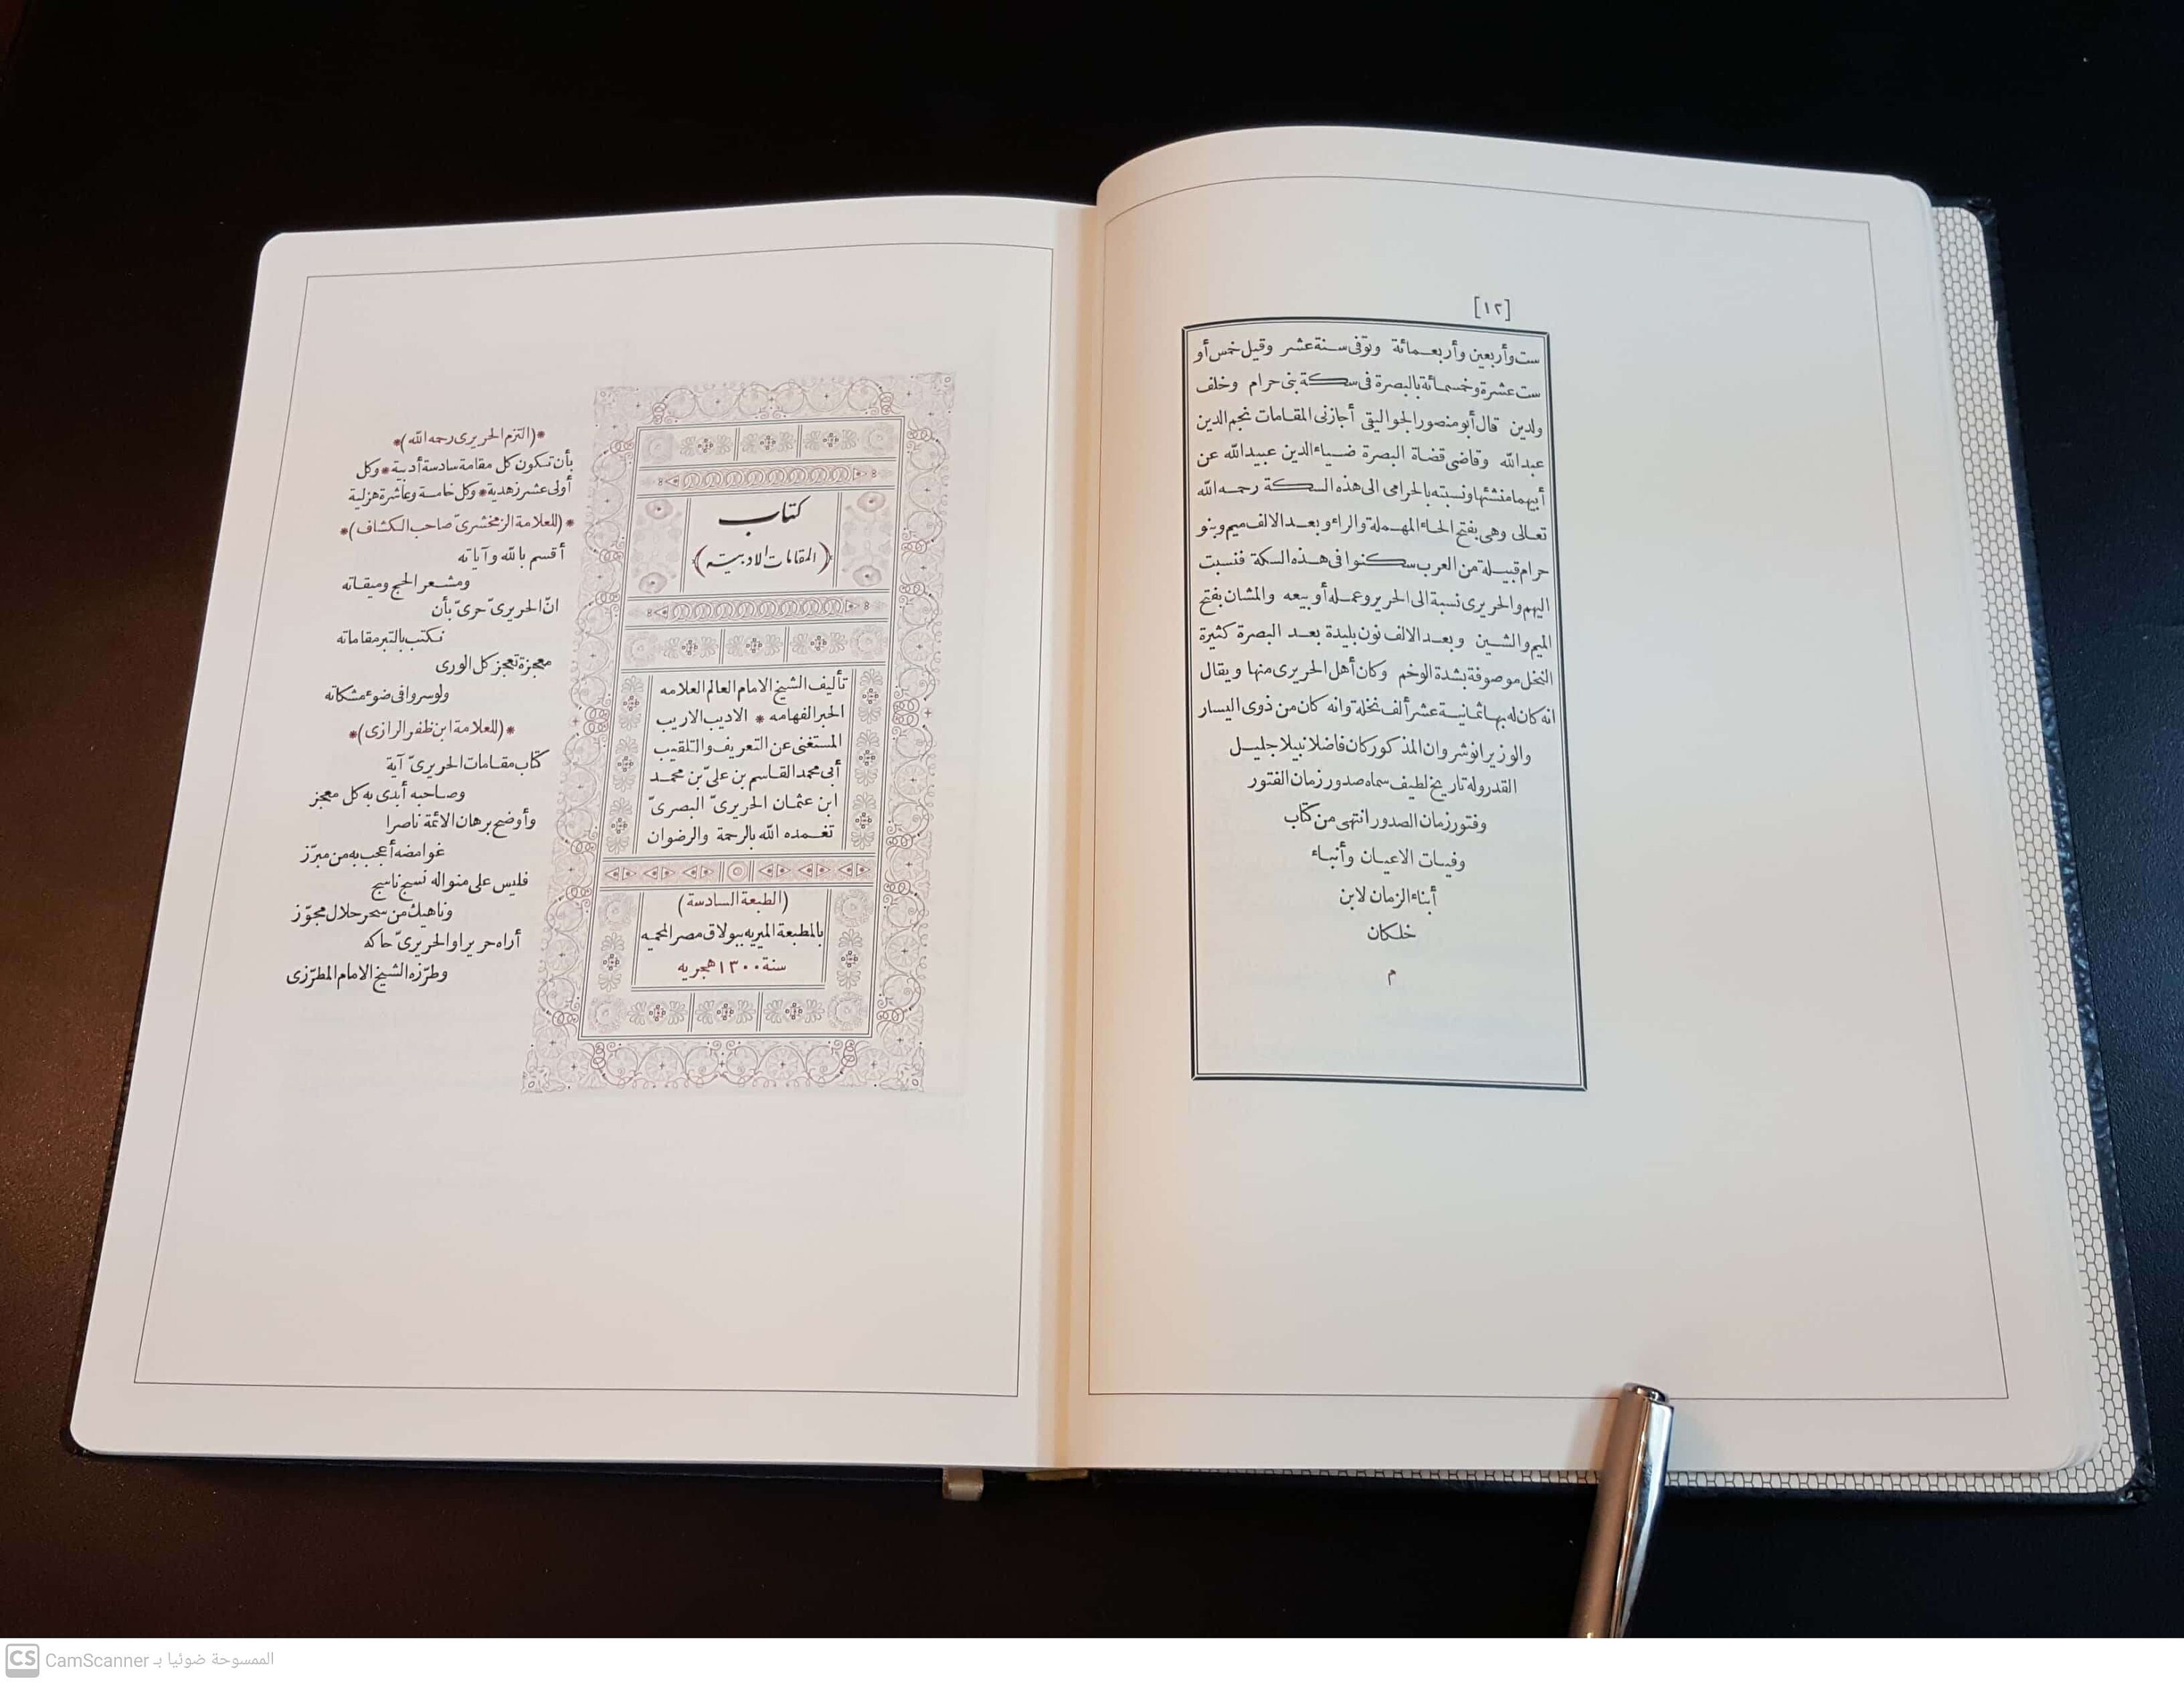 [١٢]
ست وأربعين وأربعمائة وتوفى سنة عشر وقيل خمس أو
ست عشرة وخمسمائة بالبصرة فى سكة بنى حرام وخلف
ولدين قال أبو منصور الجواليقى أجازنى المقامات نجم الدين
عبد الله وقاضى قضاة البصرة ضياء الدين عبيد الله عن
أبيهما منشئها ونسبته بالحرامى الى هذه السكة رحمه الله
تعالى وهى بفتح الحاء المهملة والراء وبعد الالف ميم وبنو
حرام قبيلة من العرب سكنوا فى هذه السكة فنسبت
اليهم والحريرى نسبة الى الحرير وعمله أو بيعه والمشان بفتح
الميم والشين وبعد الالف نون بليدة بعد البصرة كثيرة
النخل موصوفة بشدة الوخم وكان أهل الحريرى منها ويقال
انه كان له بها ثمانية عشر ألف نخلة وانه كان من ذوى اليسار
والوزير انوشروان المذكور كان فاضلا نبيلا جليل
القدر وله تاريخ لطيف سماه صدور زمان الفتور
وفتور زمان الصدور انتهى من كتاب
وفيات الاعيان وأنباء
أبناء الزمان لابن
خلكان
م
كتاب
(المقامات الادبية)
تأليف الشيخ الامام العالم العلامه
الحبر الفهامه * الاديب الاريب
المستغنى عن التعريف والتلقيب
أبى محمد القاسم بن علىّ بن محمد
ابن عثمان الحريرىّ البصرىّ
تغمده الله بالرحمة والرضوان
(الطبعة السادسة)
بالمطبعة الميريه ببولاق مصر المحميه
سنة ١٣٠٠ هجريه
*(التزم الحريرى رحمه الله)*
بأن تكون كل مقامة سادسة أدبية * وكل
أولى عشر زهدية * وكل خامسة وعاشرة هزلية
*(للعلامة الزمخشرىّ صاحب الكشاف)*
أقسم بالله وآياته
ومشعر الحج وميقاته
انّ الحريرىّ حرىّ بأن
نكتب بالتبر مقاماته
معجزة تعجز كل الورى
ولو سروا فى ضوء مشكاته
*(للعلامة ابن ظفر الرازى)*
كتاب مقامات الحريرىّ آية
وصاحبه أبدى به كل معجز
وأوضح برهان الائمة ناصرا
غوامضه أعجب به من مبرّز
فليس على منواله نسج ناسج
وناهيك من سحر حلال مجوّز
أراه حريرا والحريرىّ حاكه
وطرّزه الشيخ الامام المطرّزى
CS CamScanner الممسوحة ضوئيا بـ